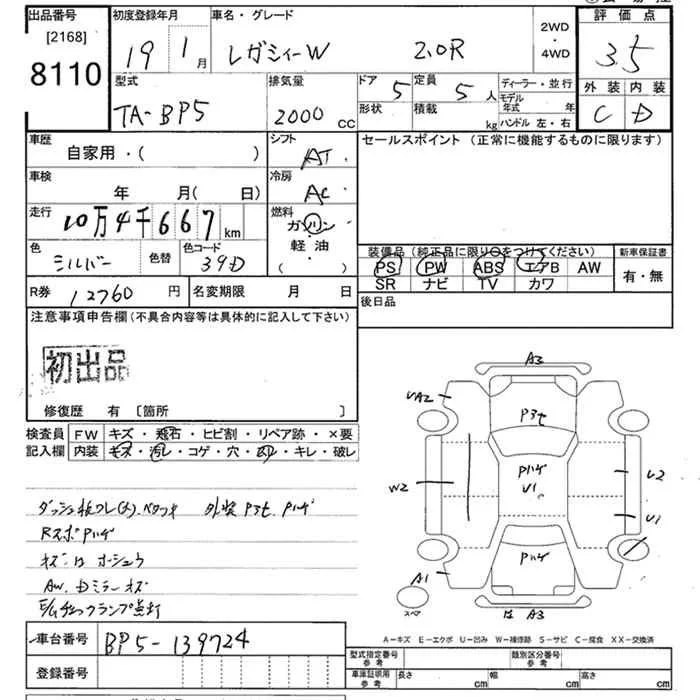 出品番号 初度登録年月 車名・グレード 2WD・4WD 評価点
[2168]
8110 19 1月 レガシィーW 2.0R 3.5
型式 排気量 ドア 5 定員 5人 ディーラー・並行 外装 内装
TA-BP5 2000cc 形状 積載 kg モデル年式 年 C D
ハンドル 左・右
車歴 シフト セールスポイント (正常に機能するものに限ります)
自家用・( ) AT
車検 冷房
年 月( 日) AC
走行 燃料
10万4千667km ガソリン・軽油・( )
色 色替 色コード 装備品(純正品に限り○をつけてください) 新車保証書
シルバー 39D PS PW ABS エアB AW 有・無
SR ナビ TV カワ
R券 12760円 名変期限 月 日 後日品
注意事項申告欄(不具合内容等は具体的に記入して下さい)
初出品
修復歴 有 〔箇所 〕
検査員 FW キズ・飛石・ヒビ割・リペア跡・×要
記入欄 内装 キズ・汚レ・コゲ・穴・キレ・破レ
ダッシュ板ズレ(大).ベタツキ 外装P3セ.Pハゲ
RスポPハゲ
AW.Dミラーキズ
E/Gチェックランプ点灯
A3
UA2
P3セ
Pハゲ
U1
W2
U2
U1
Pハゲ
A1
スペア
A3
A−キズ E−エクボ U−凹み W−補修跡 S−サビ C−腐食 XX−交換済
車台番号 BP5-139724
登録番号
型式指定番号 参考 類別区分番号 参考
車庫証明用 参考 長さ cm 幅 cm 高さ cm